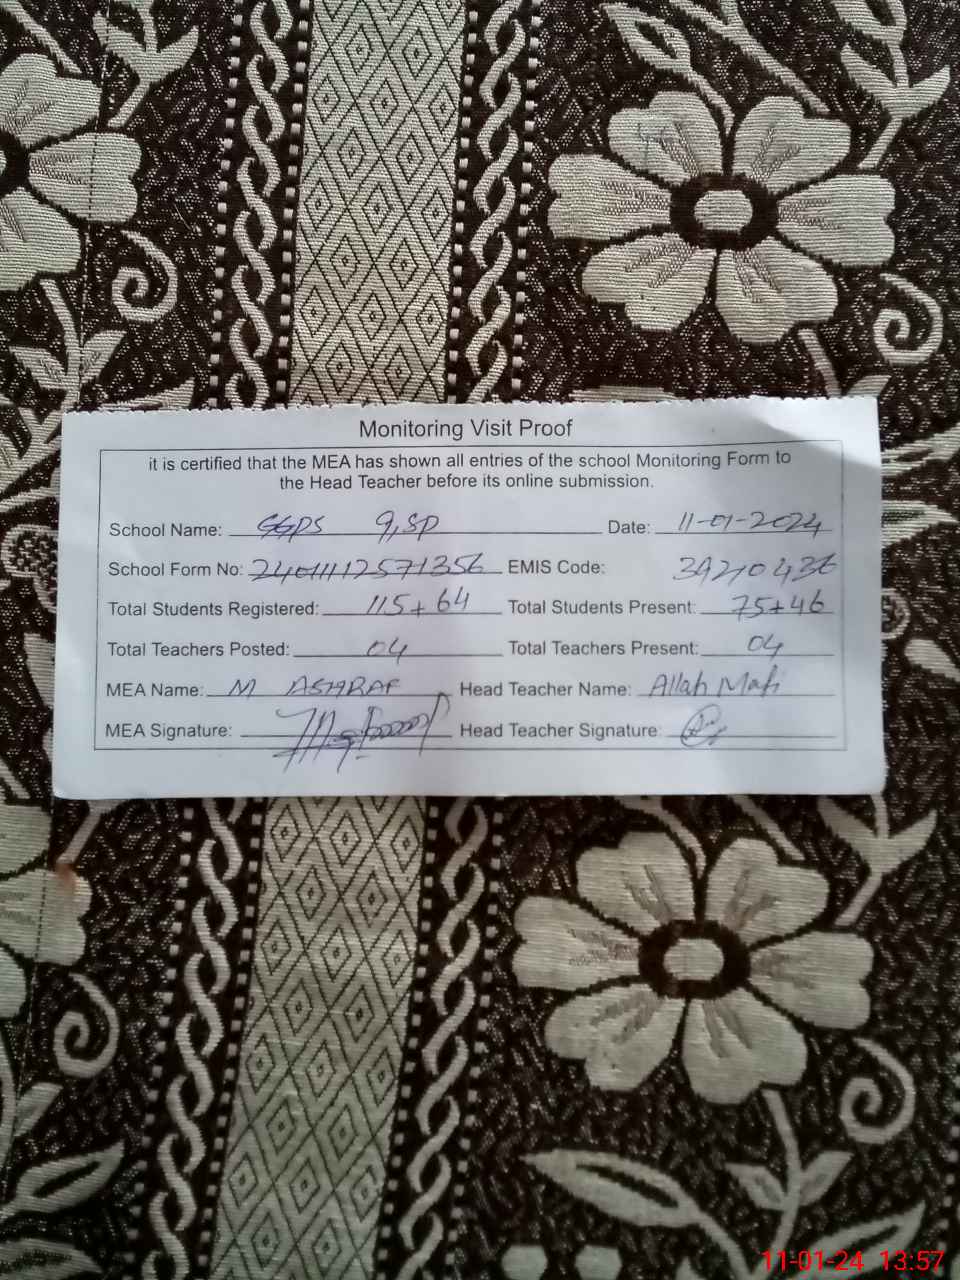 Monitoring Visit Proof
it is certified that the MEA has shown all entries of the school Monitoring Form to
the Head Teacher before its online submission.
School Name: GGPS 9,SP Date: 11-01-2024
School Form No: 24011112571356 EMIS Code: 39210436
Total Students Registered: 115+64 Total Students Present: 75+46
Total Teachers Posted: 04 Total Teachers Present: 04
MEA Name: M ASHRAF Head Teacher Name: Allah Mafi
MEA Signature: Head Teacher Signature:
11-01-24 13:57